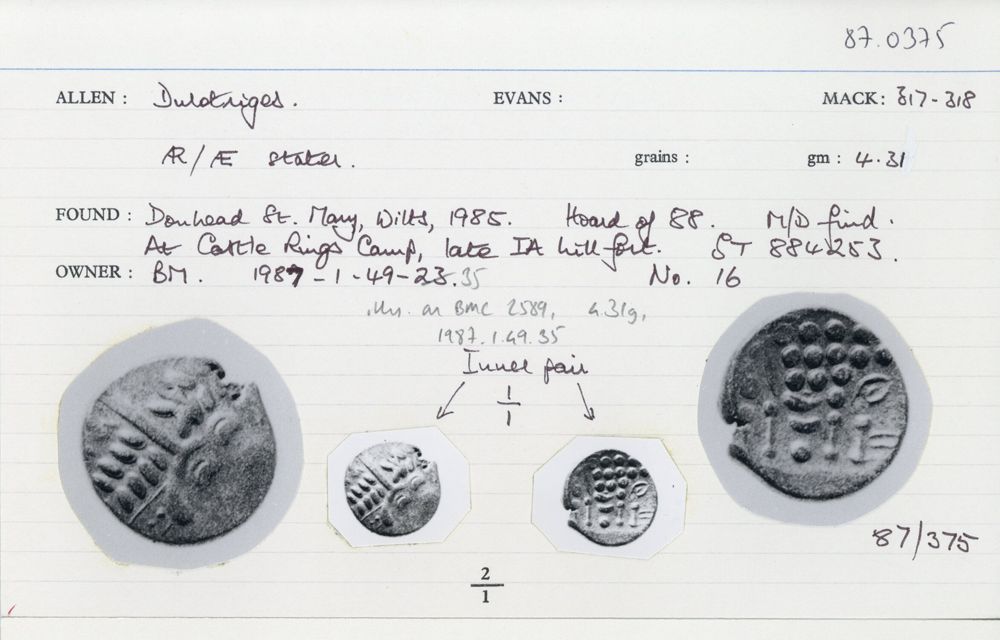 87.0375
ALLEN : Durotriges. EVANS : MACK: 317-318
ÆR/Æ stater. grains : gm : 4.31
FOUND : Donhead St. Mary, Wilts, 1985. Hoard of 88. M/D find.
At Castle Rings Camp, late IA hill fort. ST 884253.
OWNER : BM. 1987-1-49-23.35 No. 16
Illus. on BMC 2589, 4.31g,
1987.1.49.35
Inner pair
1
1
87/375
2
1